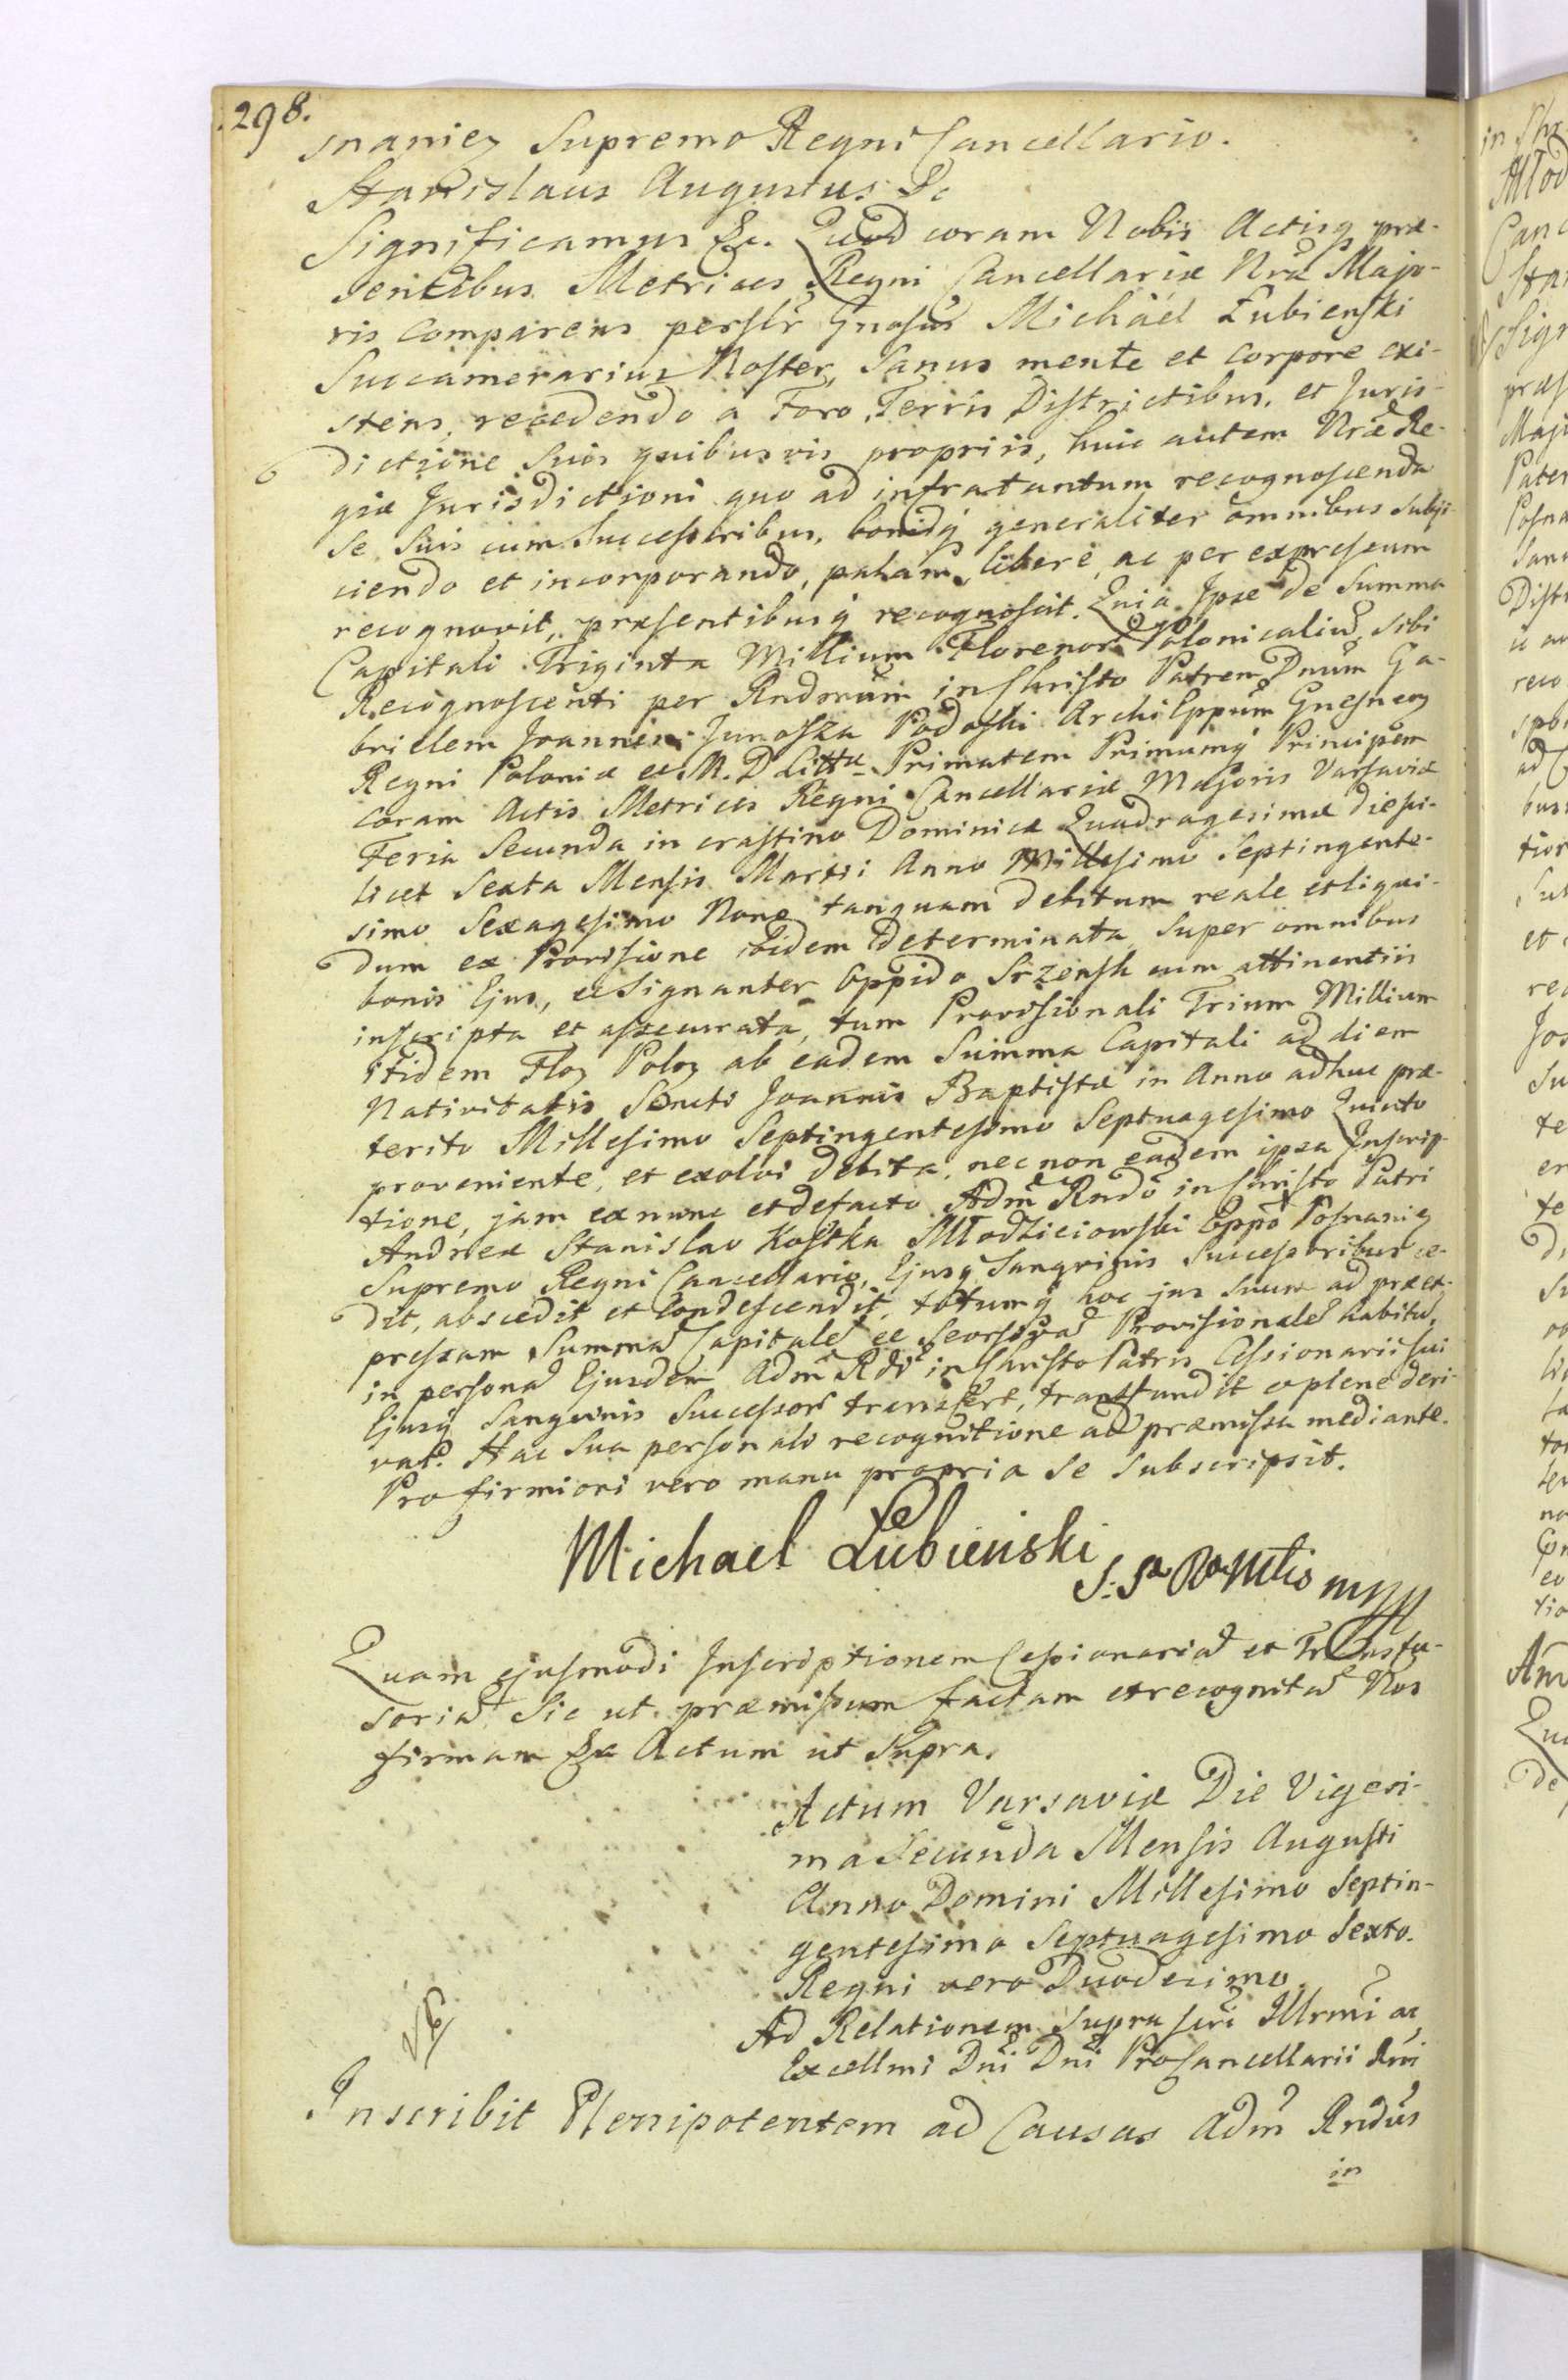 298.
snanien Supremo Regni Cancellario.
Stanislaus Augustus &c
Significamus &c. Quod coram Nobis Actisq præ-
sentibus Metrices Regni Cancellariæ Nræ Majo-
ris Comparens perslr Gnosus Michäel Łubienski
Succamerarius Noster, Sanus mente et Corpore exi-
stens, recedendo a Foro, Terris Districtibus, et Juris-
dictione suis quibusvis propriis, huic autem Nræ Re-
giæ Jurisdictioni quo ad infra tantum recognoscenda
se suis cum Successoribus, bonisq generaliter omnibus subji-
ciendo et incorporando, palam, libere, ac per expressum
recognovit, præsentibusq recognoscit. Quia Ipse de Summa
Capitali Triginta Millium Florenor Polonicaliu, sibi
Recognoscenti per Rndssmum in Christo Patrem Dnum Ga-
brielem Joannem Junosza Podoski Archi Eppum Gnesnen
Regni Poloniæ et M. D. Littæ Primatem Primumq Principem
Coram Actis Metrices Regni Cancellariæ Majoris Varsaviæ
Feria Secunda in crastino Dominicæ Quadragesimæ die sci-
licet Sexta Mensis Martii Anno Millesimo Septingente-
simo Sexagesimo Nono tanquam debitum reale et liqui-
dum ex Provisione ibidem determinata super omnibus
bonis Ejus, et signanter Oppido Srzensk cum attinentiis
inscripta et assecurata, tum Provisionali Trium Millium
itidem Flor Polon ab eadem Summa Capitali ad diem
Nativitatis Sancti Joannis Baptistæ in Anno adhuc præ-
terito Millesimo Septingentesimo Septuagesimo Quinto
proveniente, et exolvi debita, nec non eadem ipsa Inscrip-
tione, jam ex nunc et de facto Adm Rndo in Christo Patri
Andreæ Stanislao Kostka Młodzieiowski Eppo Posnanien
Supremo Regni Cancellario, Ejusq Sanguinis Successoribus ce-
dit, abscedit et Condescendit, totumq hoc jus suum ad præex-
pressam Summa Capitale et seorsiva Provisionale habitu,
in persona Ejusdem Adm Rdi in Christo Patris Cessionarii sui
Ejusq Sanguinis Successor transfert, transfundit ac plene deri-
vat. Hac sua personali recognitione ad præmissa mediante.
Pro firmiori vero manu propria se subscripsit.
Michael Łubienski
Quam ejusmodi Inscriptionem Cessionaria et Transfu-
soria sic ut præmissum factam et recognita Nos
firmam &c Actum ut Supra.
Actum Varsaviæ Die Vigesi-
ma Secunda Mensis Augusti
Anno Domini Millesimo Septin-
gentesimo Septuagesimo Sexto.
Regni vero Duodecimo.
Ad Relationem supra scri Illrmi ac
Excellmi Dni Dni ProCancellarii Rni
Inscribit Plenipotentem ad Causas Adm Rndus
in